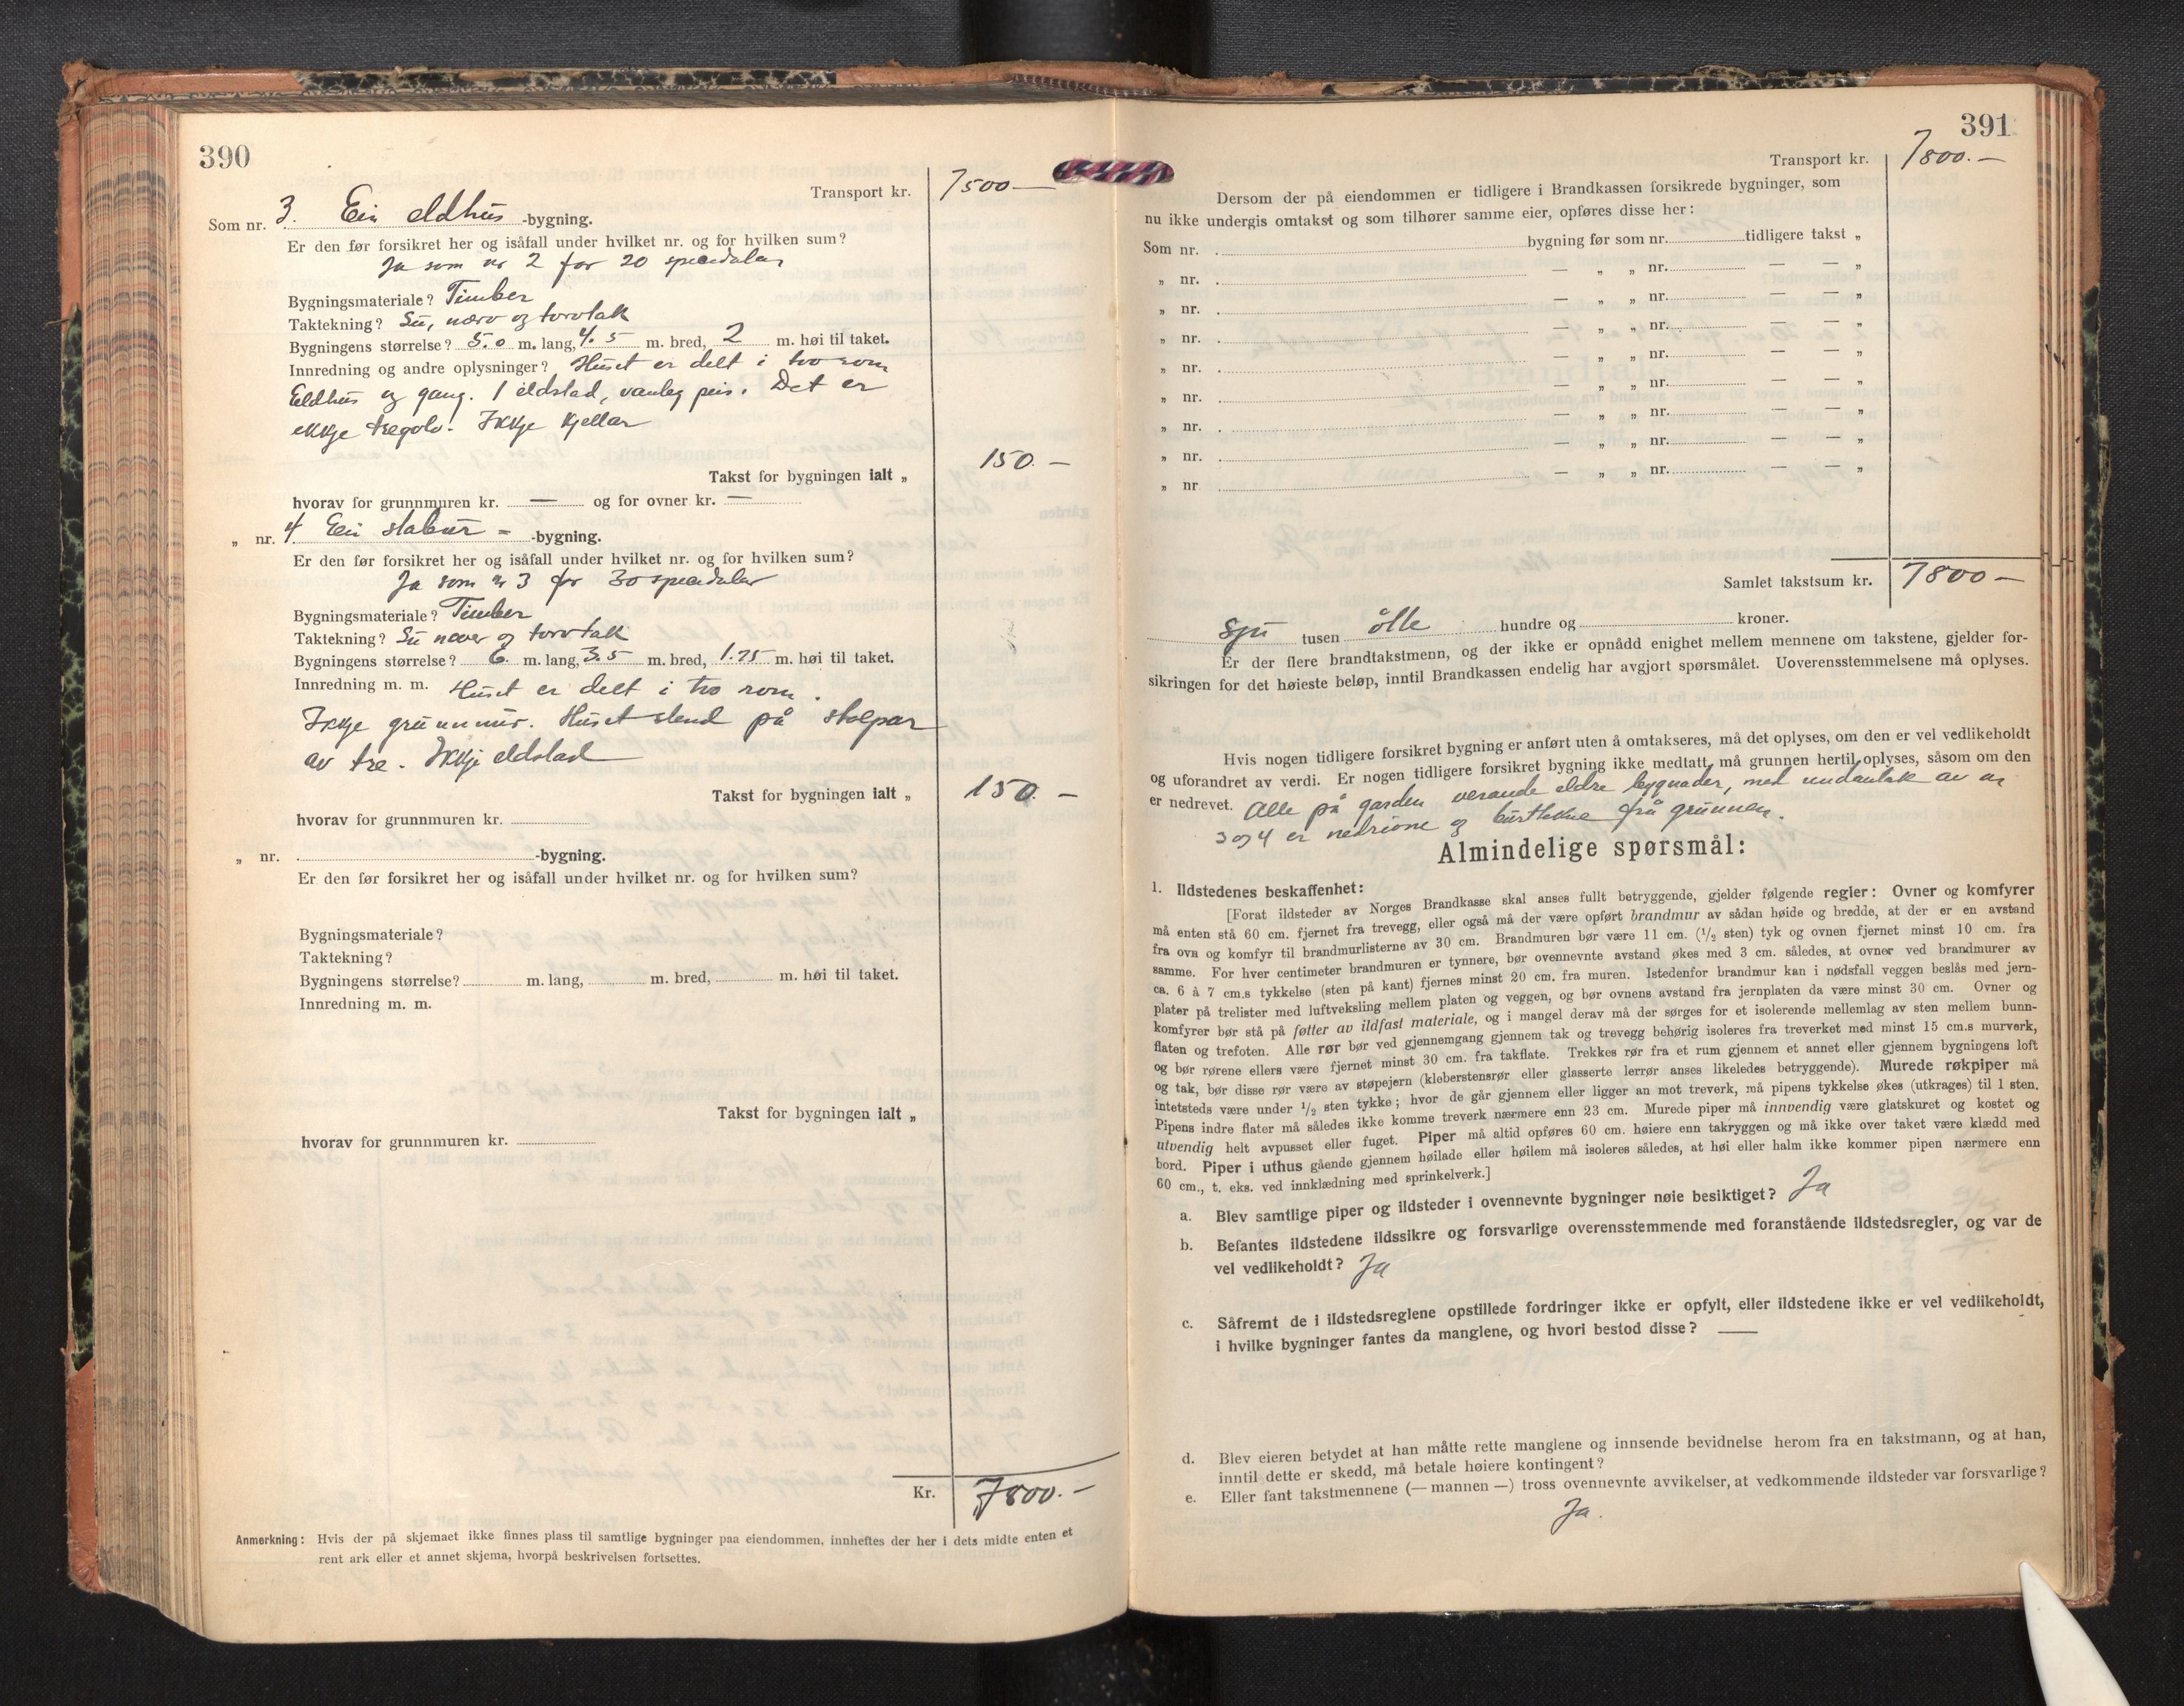 390
Transport kr. 7500.—
Som nr. 3. Ein eldhus -bygning.
Er den før forsikret her og isåfall under hvilket nr. og for hvilken sum?
Ja som nr 2 for 20 speciedalar
Bygningsmateriale? Timber
Taktekning? Su, næver og torvtak
Bygningens størrelse? 5.0 m. lang, 4.5 m. bred, 2 m. høi til taket.
Innredning og andre oplysninger? Huset er delt i two rom
Eeldhus og gang. 1 eldstad, vanleg peis. Det er
ikkje tregolv. Ikkje kjellar
150.—
Takst for bygningen ialt „
hvorav for grunnmuren kr. — og for ovner kr. —
„ nr. 4 Ein stabur = -bygning.
Er den før forsikret her og isåfall under hvilket nr. og for hvilken sum?
Ja som nr 3 for 30 speciedalar
Bygningsmateriale? Timber
Taktekning? Su næver og torvtak
Bygningens størrelse? 6. m. lang, 3.5 m. bred, 1.75 m. høi til taket.
Innredning m. m. Huset er delt i tvo rom.
Ikkje grunnmur. Huset stend på stolpar
av tre. Ikkje eldstad
Takst for bygningen ialt „ 150.—
hvorav for grunnmuren kr.
„ nr. -bygning.
Er den før forsikret her og isåfall under hvilket nr. og for hvilken sum?
Bygningsmateriale?
Taktekning?
Bygningens størrelse? m. lang, m. bred, m. høi til taket.
Innredning m. m.
Takst for bygningen ialt „
hvorav for grunnmuren kr.
Kr. 7800.—
Anmerkning: Hvis der på skjemaet ikke finnes plass til samtlige bygninger paa eiendommen, innheftes der her i dets midte enten et
rent ark eller et annet skjema, hvorpå beskrivelsen fortsettes.
391
Transport kr. 7800.—
Dersom der på eiendommen er tidligere i Brandkassen forsikrede bygninger, som
nu ikke undergis omtakst og som tilhører samme eier, opføres disse her:
Som nr. bygning før som nr. tidligere takst „
„ nr. — „ „ nr. — — „
„ nr. — „ „ nr. — — „
„ nr. — „ „ nr. — — „
„ nr. — „ „ nr. — — „
„ nr. — „ „ nr. — — „
„ nr. — „ „ nr. — — „
„ nr. — „ „ nr. — — „
„ nr — „ „ nr. — — „
Samlet takstsum kr. 7800—
Sju tusen ótte hundre og kroner.
Er der flere brandtakstmenn, og der ikke er opnådd enighet mellem mennene om takstene, gjelder for-
sikringen for det høieste beløp, inntil Brandkassen endelig har avgjort spørsmålet. Uoverensstemmelsene må oplyses.
Hvis nogen tidligere forsikret bygning er anført uten å omtakseres, må det oplyses, om den er vel vedlikeholdt
og uforandret av verdi. Er nogen tidligere forsikret bygning ikke medtatt, må grunnen hertil oplyses, såsom om den
er nedrevet. Alle på garden verande eldre bygnader, med undantak av nr
3 og 4 er nedrivne og burttekne frå grunnen.
Almindelige spørsmål:
1. Ildstedenes beskaffenhet:
[Forat ildsteder av Norges Brandkasse skal anses fullt betryggende, gjelder følgende regler: Ovner og komfyrer
må enten stå 60 cm. fjernet fra trevegg, eller også må der være opført brandmur av sådan høide og bredde, at der er en avstand
fra ovn og komfyr til brandmurlisterne av 30 cm. Brandmuren bør være 11 cm. (1/2 sten) tyk og ovnen fjernet minst 10 cm. fra
samme. For hver centimeter brandmuren er tynnere, bør ovennevnte avstand økes med 3 cm. således, at ovner ved brandmurer av
ca. 6 à 7 cm.s tykkelse (sten på kant) fjernes minst 20 cm. fra muren. Istedenfor brandmur kan i nødsfall veggen beslås med jern-
plater på trelister med luftveksling mellem platen og veggen, og bør ovnens avstand fra jernplaten da være minst 30 cm. Ovner og
komfyrer bør stå på føtter av ildfast materiale, og i mangel derav må der sørges for et isolerende mellemlag av sten mellem bunn-
flaten og trefoten. Alle rør bør ved gjennemgang gjennem tak og trevegg behørig isoleres fra treverket med minst 15 cm.s murverk,
og bør rørene ellers være fjernet minst 30 cm. fra takflate. Trekkes rør fra et rum gjennem et annet eller gjennem bygningens loft
og tak, bør disse rør være av støpejern (kleberstensrør eller glasserte lerrør anses likeledes betryggende). Murede røkpiper må
intetsteds være under 1/2 sten tykke; hvor de går gjennem eller ligger an mot treverk, må pipens tykkelse økes (utkrages) til 1 sten.
Pipens indre flater må således ikke komme treverk nærmere enn 23 cm. Murede piper må innvendig være glatskuret og kostet og
utvendig helt avpusset eller fuget. Piper må altid opføres 60 cm. høiere enn takryggen og må ikke over taket være klædd med
bord. Piper i uthus gående gjennem høilade eller høilem må isoleres således, at høi eller halm ikke kommer pipen nærmere enn
60 cm., t. eks. ved innklædning med sprinkelverk.]
a. Blev samtlige piper og ildsteder i ovennevnte bygninger nøie besiktiget? Ja
b. Befantes ildstedene ildssikre og forsvarlige overensstemmende med foranstående ildstedsregler, og var de
vel vedlikeholdt? Ja
c. Såfremt de i ildstedsreglene opstillede fordringer ikke er opfylt, eller ildstedene ikke er vel vedlikeholdt,
i hvilke bygninger fantes da manglene, og hvori bestod disse? —
d. Blev eieren betydet at han måtte rette manglene og innsende bevidnelse herom fra en takstmann, og at han,
inntil dette er skedd, må betale høiere kontingent?
e. Eller fant takstmennene (— mannen —) tross ovennevnte avvikelser, at vedkommende ildsteder var forsvarlige?
Ja.